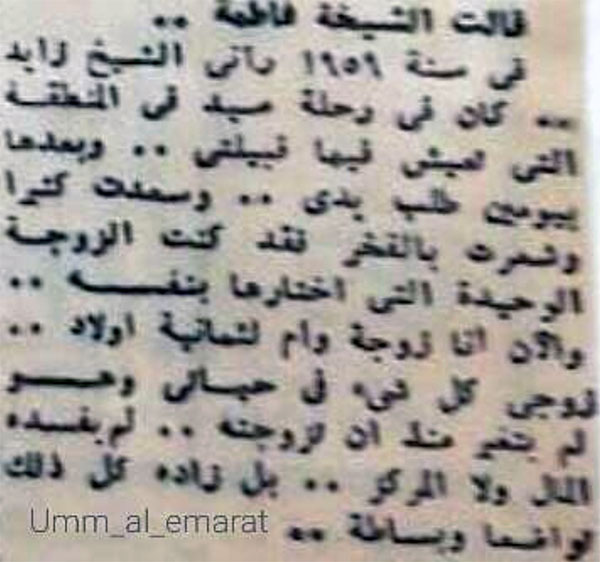 قالت الشيخة فاطمة ..
في سنة ١٩٥٩ رآني الشيخ زايد
.. كان في رحلة صيد في المنطقة
التي تعيش فيها قبيلتي .. وبعدها
بيومين طلب يدى .. وسعدت كثيرا
وشعرت بالفخر فقد كنت الزوجة
الوحيدة التي اختارها بنفسه ..
والآن أنا زوجة وأم لثمانية اولاد ..
زوجي كل شيء في حياتي وهو
لم يتغير منذ ان تزوجته .. لم يفسده
المال ولا المركز .. بل زاده كل ذلك
تواضعا وبساطة ..
Umm_al_emarat